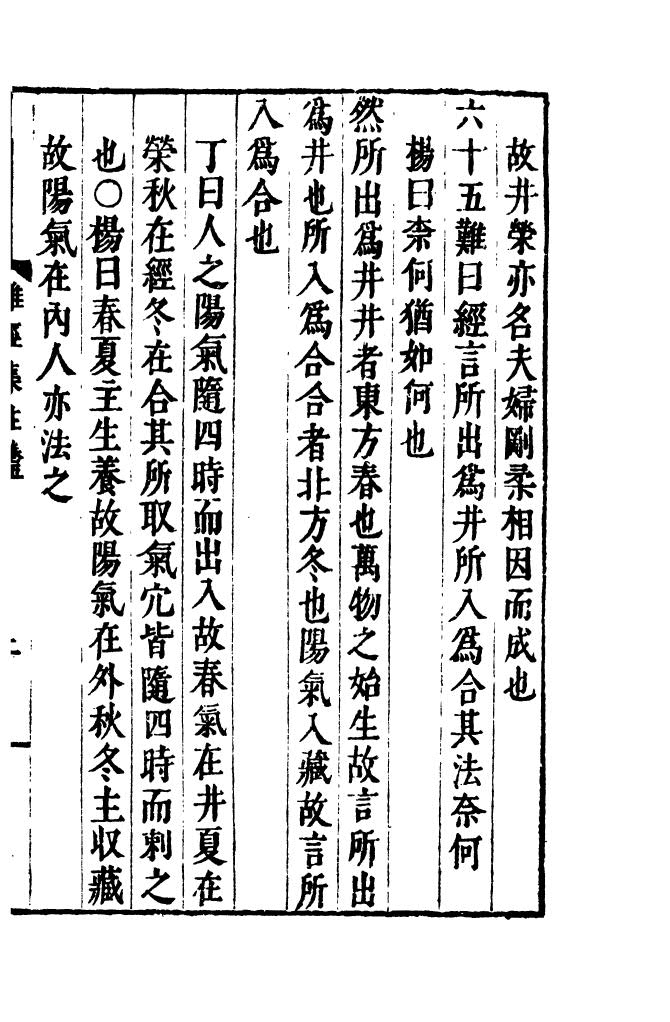 故井榮亦名夫婦剛柔相因而成也
六十五難曰經言所出爲井所入爲合其法奈何
楊曰柰何猶如何也
然所出爲井井者東方春也萬物之始生故言所出
爲井也所入爲合合者北方冬也陽氣入藏故言所
入爲合也
丁曰人之陽氣隨四時而出入故春氣在井夏在
榮秋在經冬在合其所取氣穴皆隨四時而刺之
也○楊曰春夏主生養故陽氣在外秋冬主收藏
故陽氣在內人亦法之
難經集註